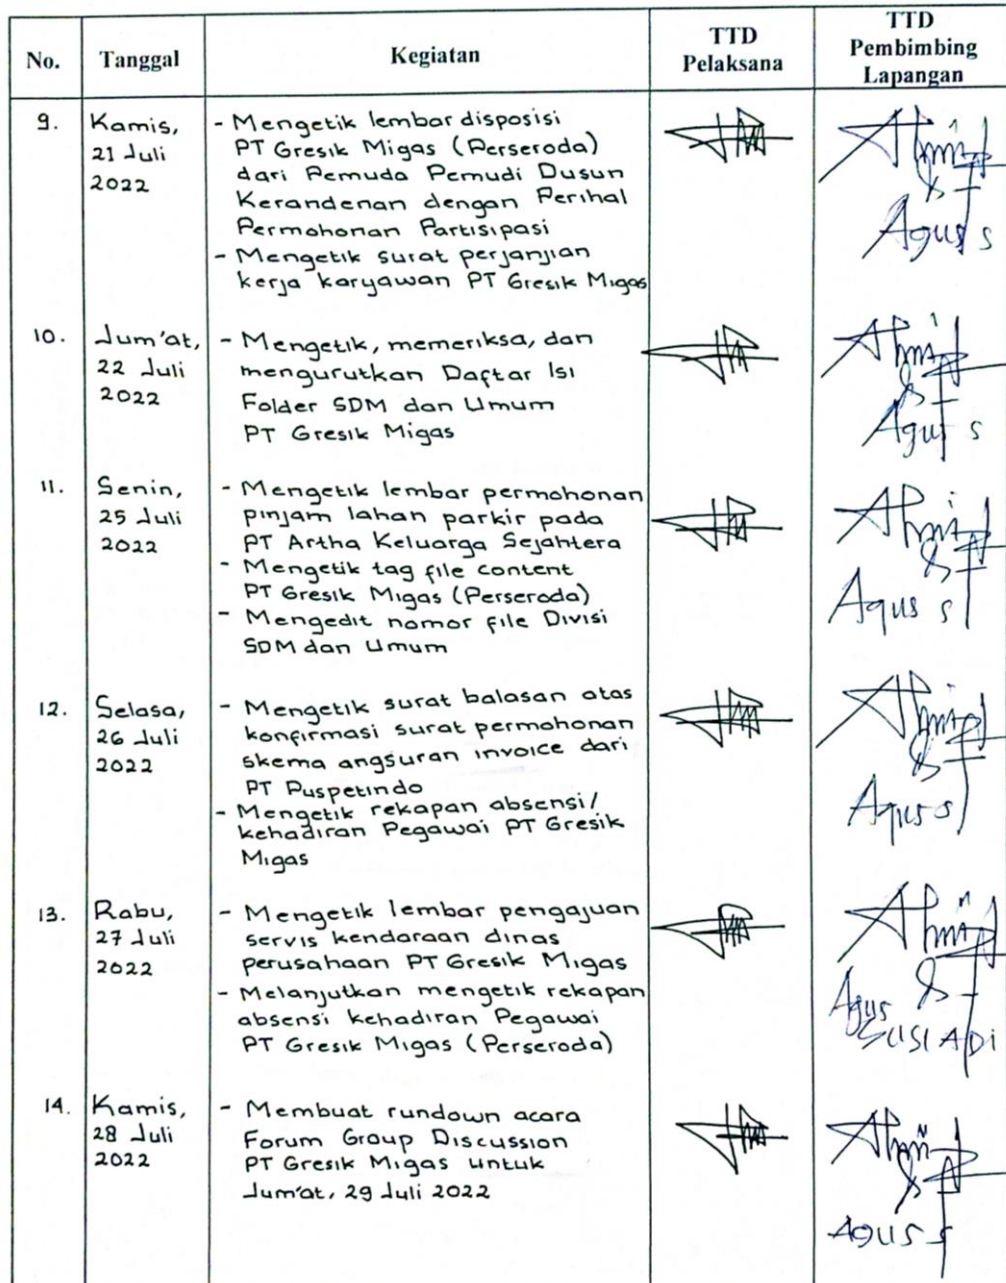 No.
Tanggal
Kegiatan
TTD
Pelaksana
TTD
Pembimbing
Lapangan
9.
Kamis,
21 Juli
2022
- Mengetik lembar disposisi
PT Gresik Migas (Perseroda)
dari Pemuda Pemudi Dusun
Kerandenan dengan Perihal
Permohonan Partisipasi
- Mengetik surat perjanjian
kerja karyawan PT Gresik Migas
Agus s
10.
Jum'at,
22 Juli
2022
- Mengetik, memeriksa, dan
mengurutkan Daftar Isi
Folder SDM dan Umum
PT Gresik Migas
Agus s
11.
Senin,
25 Juli
2022
- Mengetik lembar permohonan
pinjam lahan parkir pada
PT Artha Keluarga Sejahtera
- Mengetik tag file content
PT Gresik Migas (Perseroda)
- Mengedit nomor file Divisi
SDM dan Umum
Agus s
12.
Selasa,
26 Juli
2022
- Mengetik surat balasan atas
konfirmasi surat permohonan
skema angsuran invoice dari
PT Puspetindo
- Mengetik rekapan absensi/
kehadiran Pegawai PT Gresik
Migas
Agus s
13.
Rabu,
27 Juli
2022
- Mengetik lembar pengajuan
servis kendaraan dinas
perusahaan PT Gresik Migas
- Melanjutkan mengetik rekapan
absensi kehadiran Pegawai
PT Gresik Migas (Perseroda)
Agus
SUSIADI
14.
Kamis,
28 Juli
2022
- Membuat rundown acara
Forum Group Discussion
PT Gresik Migas untuk
Jum'at, 29 Juli 2022
AGUS s